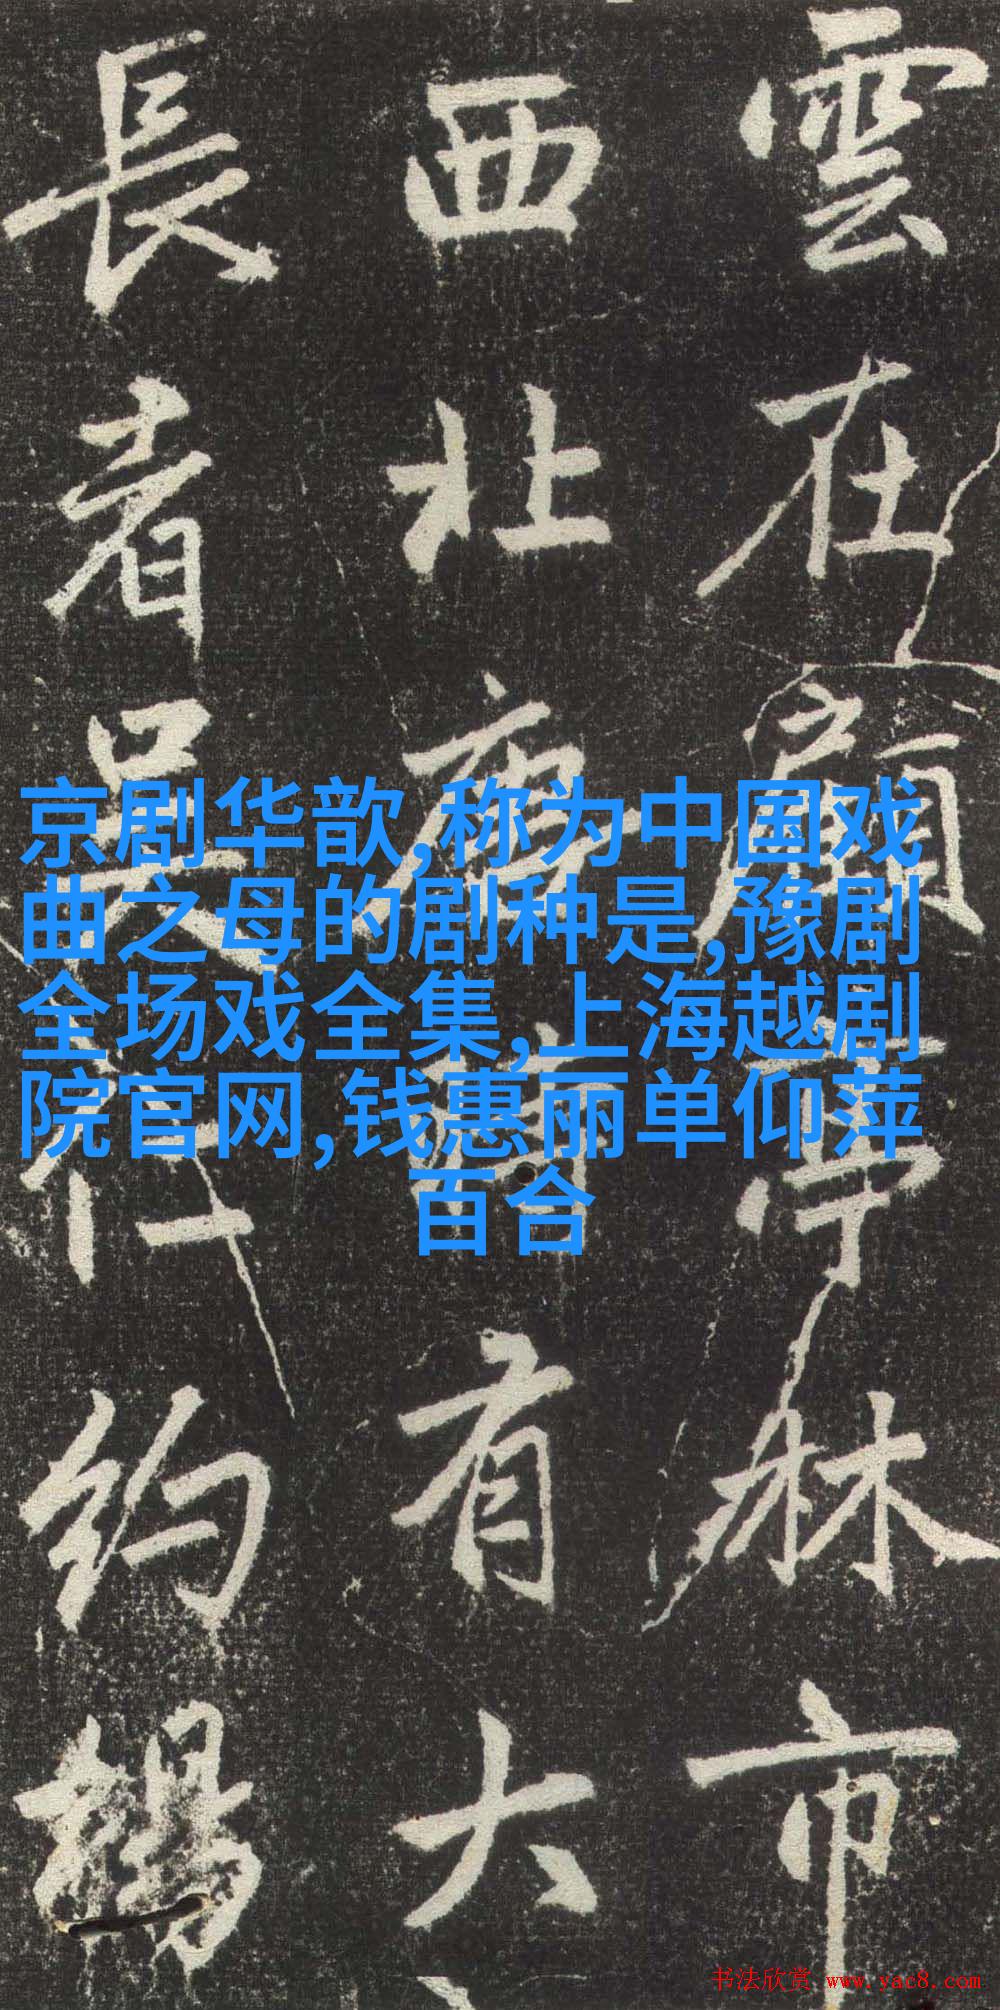 雲在顧亭林市
西北唐𭥍有大
長者吳行約楊
京剧华歆,称为中国戏
曲之母的剧种是,豫剧
全场戏全集,上海越剧
院官网,钱惠丽单仰萍
百合
书法欣赏 www.yac8.com